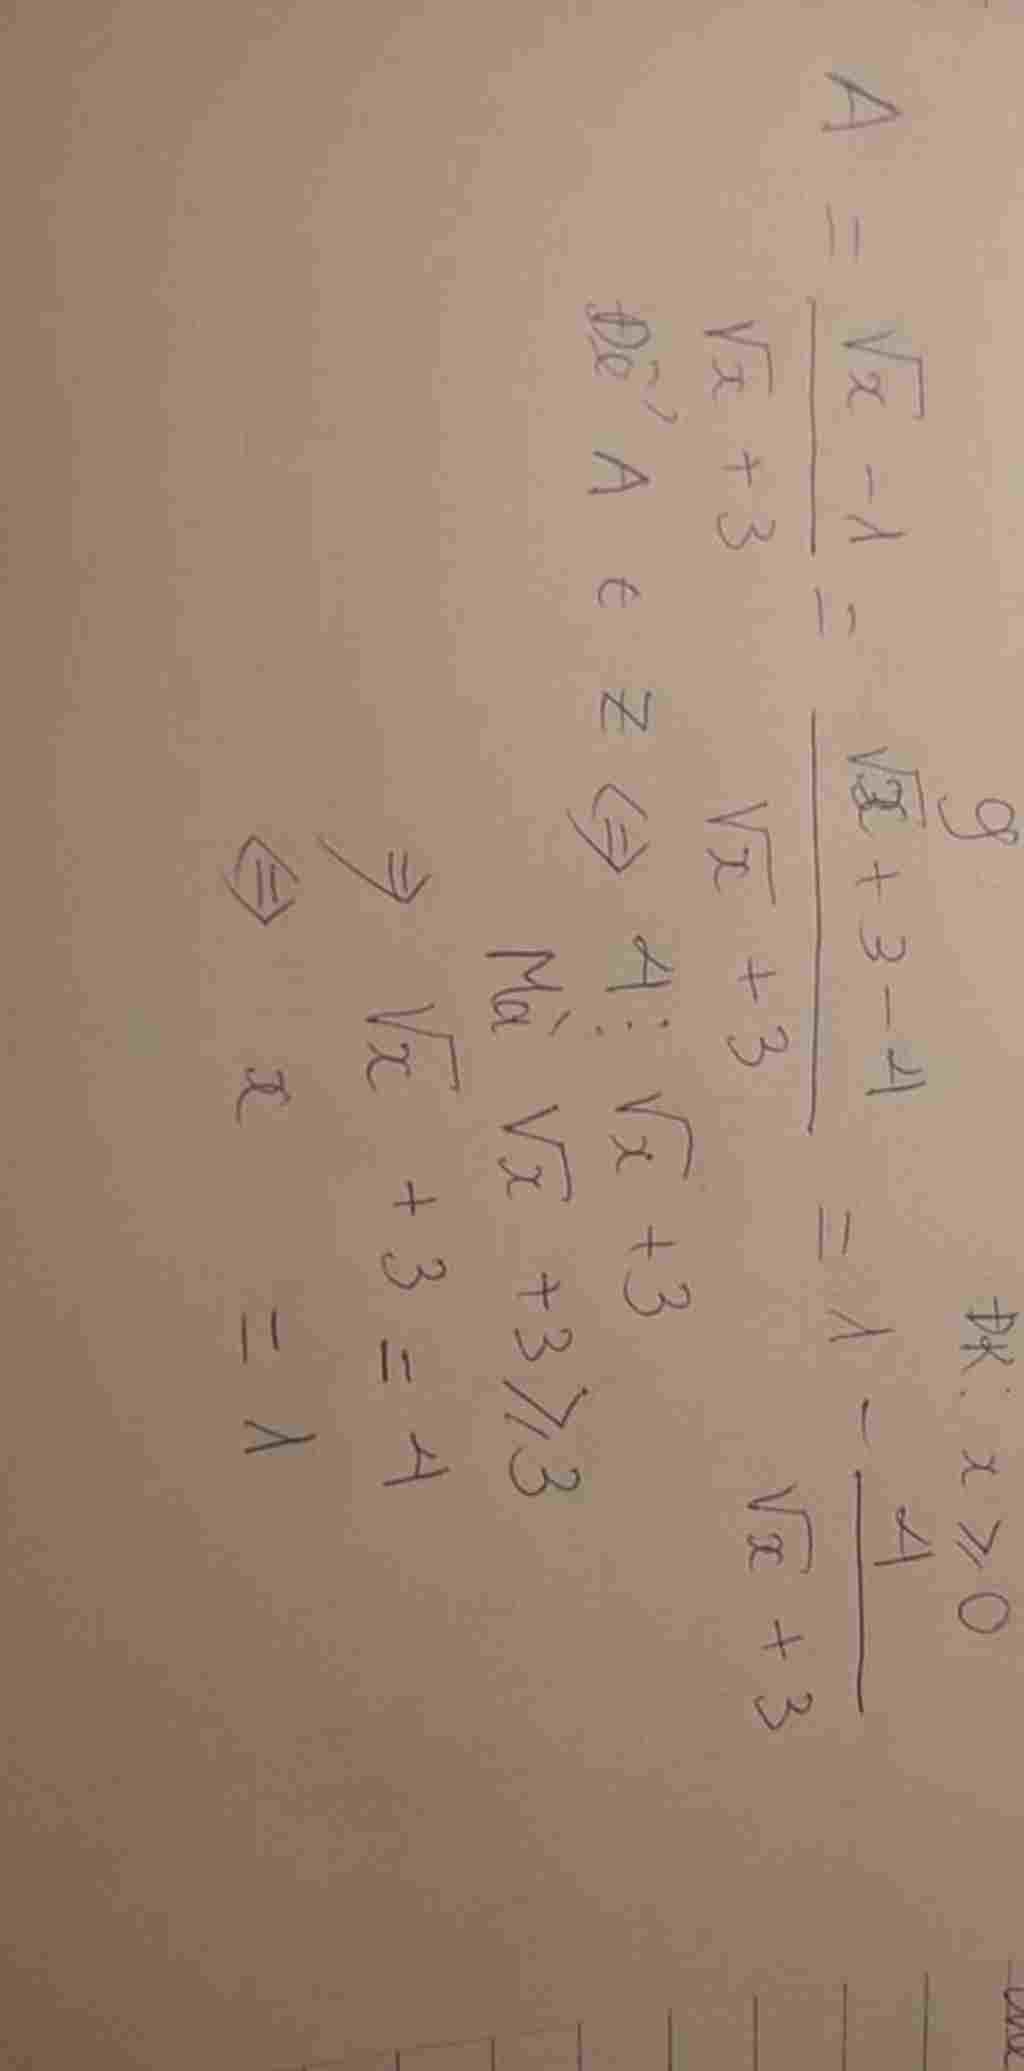 g
ĐK: x ⩾ 0
A = (√x - 1)/(√x + 3) = (√x + 3 - 4)/(√x + 3) = 1 - 4/(√x + 3)
Để A ∈ Z ⇔ 4 ⋮ √x + 3
Mà √x + 3 ⩾ 3
⇒ √x + 3 = 4
⇔ x = 1